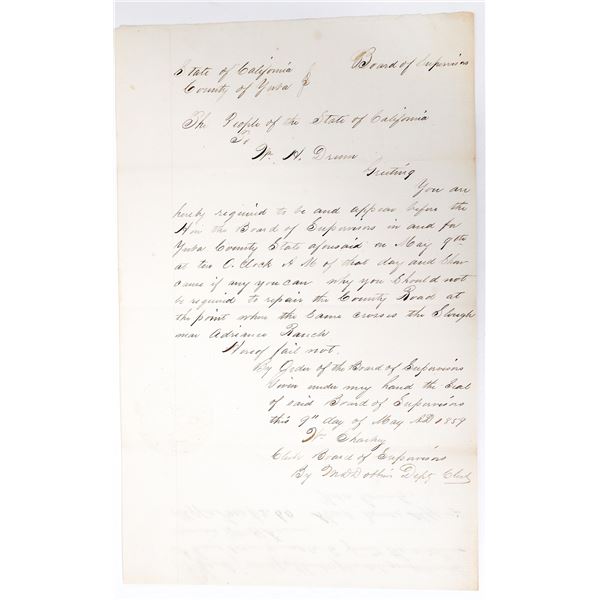 State of California } Board of Supervisors
County of Yuba
The People of the State of California
To
Wm H. Drum
Greeting
You are
hereby required to be and appear before the
Hon the Board of Supervisors in and for
Yuba County State aforesaid on May 9th
at ten O.Clock A M of that day and Show
cause if any you can why you Should not
be required to repair the County Road at
the point where the Same crosses the Slough
near Adriance Ranch
Hereof fail not.
By Order of the Board of Supervisors
Given under my hand the Seal
of said Board of Supervisors
this 9" day of May AD 1859
Wm Sharkey
Clerk Board of Supervisors
By Dobbin Dept Clerk